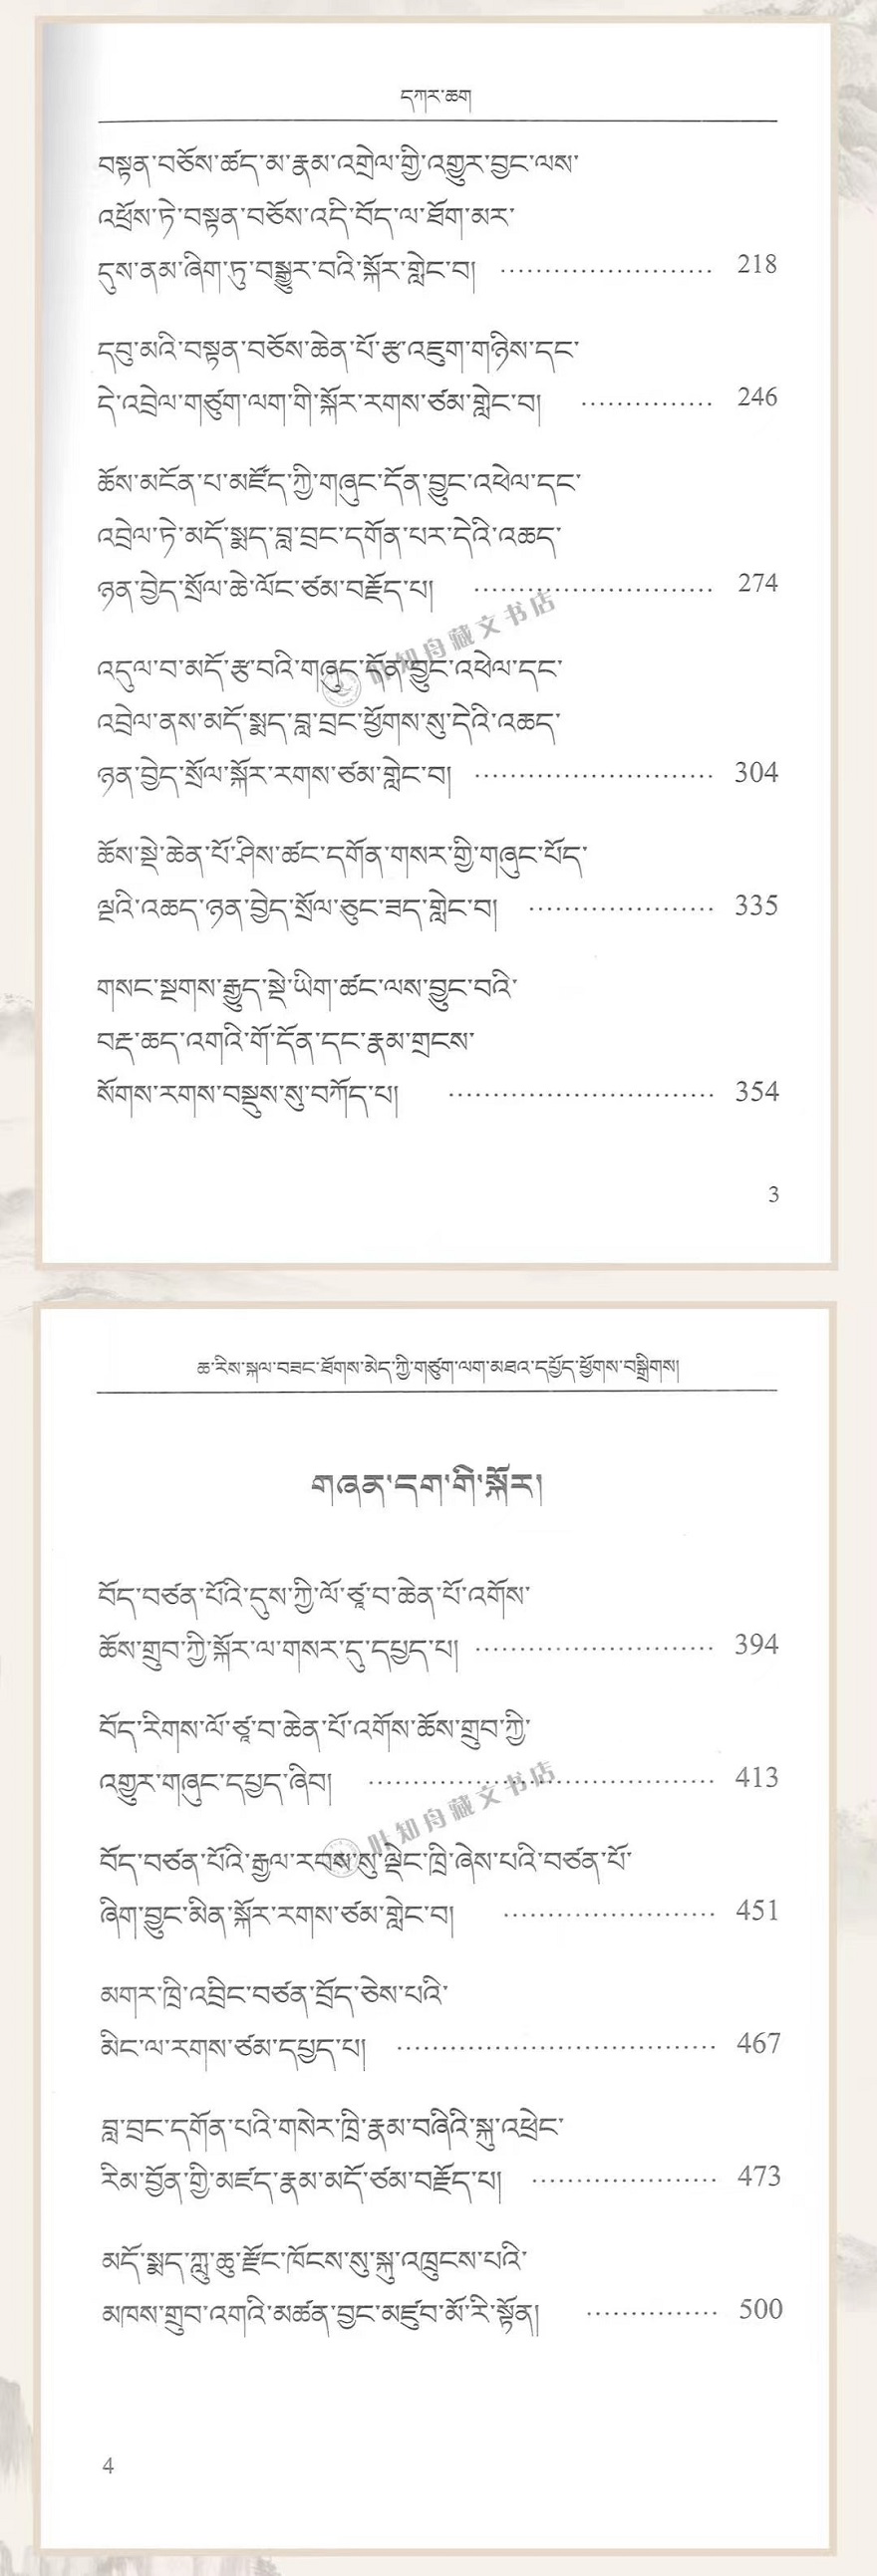 དཀར་ཆག
བསྟན་བཅོས་ཚད་མ་རྣམ་འགྲེལ་གྱི་འགྱུར་བྱང་ལས་
འཕྲོས་ཏེ་བསྟན་བཅོས་འདི་བོད་ལ་ཐོག་མར་
དུས་ནམ་ཞིག་ཏུ་བསྒྱུར་བའི་སྐོར་གླེང་བ། ........................ 218
དབུ་མའི་བསྟན་བཅོས་ཆེན་པོ་རྩ་འཇུག་གཉིས་དང་
དེ་འབྲེལ་གཙུག་ལག་གི་སྐོར་རགས་ཙམ་གླེང་བ། ............... 246
ཆོས་མངོན་པ་མཛོད་ཀྱི་གཞུང་དོན་བྱུང་འཕེལ་དང་
འབྲེལ་ཏེ་མདོ་སྨད་བླ་བྲང་དགོན་པར་དེའི་འཆད་
ཉན་བྱེད་སྲོལ་ཆེ་ལོང་ཙམ་བརྗོད་པ། ........................... 274
འདུལ་བ་མདོ་རྩ་བའི་གཞུང་དོན་བྱུང་འཕེལ་དང་
འབྲེལ་ནས་མདོ་སྨད་བླ་བྲང་ཕྱོགས་སུ་དེའི་འཆད་
ཉན་བྱེད་སྲོལ་སྐོར་རགས་ཙམ་གླེང་བ། ........................... 304
ཆོས་སྡེ་ཆེན་པོ་ཤིས་ཚང་དགོན་གསར་གྱི་གཞུང་པོད་
ལྔའི་འཆད་ཉན་བྱེད་སྲོལ་ཅུང་ཟད་གླེང་བ། ..................... 335
གསང་སྔགས་རྒྱུད་སྡེ་ཡིག་ཚང་ལས་བྱུང་བའི་
བརྡ་ཆད་འགའི་གོ་དོན་དང་རྣམ་གྲངས་
སོགས་རགས་བསྡུས་སུ་བཀོད་པ། .............................. 354
叶知舟藏文书店
3
ཆ་རིས་སྐལ་བཟང་ཐོགས་མེད་ཀྱི་གཙུག་ལག་མཐའ་དཔྱོད་ཕྱོགས་བསྒྲིགས།
གཞན་དག་གི་སྐོར།
བོད་བཙན་པོའི་དུས་ཀྱི་ལོ་ཙཱ་བ་ཆེན་པོ་འགོས་
ཆོས་གྲུབ་ཀྱི་སྐོར་ལ་གསར་དུ་དཔྱད་པ། ........................... 394
བོད་རིགས་ལོ་ཙཱ་བ་ཆེན་པོ་འགོས་ཆོས་གྲུབ་ཀྱི་
འགྱུར་གཞུང་དཔྱད་ཞིབ། ....................................... 413
བོད་བཙན་པོའི་རྒྱལ་རབས་སུ་ལྡེང་ཁྲི་ཞེས་པའི་བཙན་པོ་
ཞིག་བྱུང་མིན་སྐོར་རགས་ཙམ་གླེང་བ། ........................ 451
མགར་ཁྲི་འབྲིང་བཙན་བྲོད་ཅེས་པའི་
མིང་ལ་རགས་ཙམ་དཔྱད་པ། .................................... 467
བླ་བྲང་དགོན་པའི་གསེར་ཁྲི་རྣམ་བཞིའི་སྐུ་འཕྲེང་
རིམ་བྱོན་གྱི་མཛད་རྣམ་མདོ་ཙམ་བརྗོད་པ། ..................... 473
མདོ་སྨད་ཀླུ་ཆུ་རྫོང་ཁོངས་སུ་སྐུ་འཁྲུངས་པའི་
མཁས་གྲུབ་འགའི་མཚན་བྱང་མཛུབ་མོ་རི་སྟོན། ............... 500
叶知舟藏文书店
4